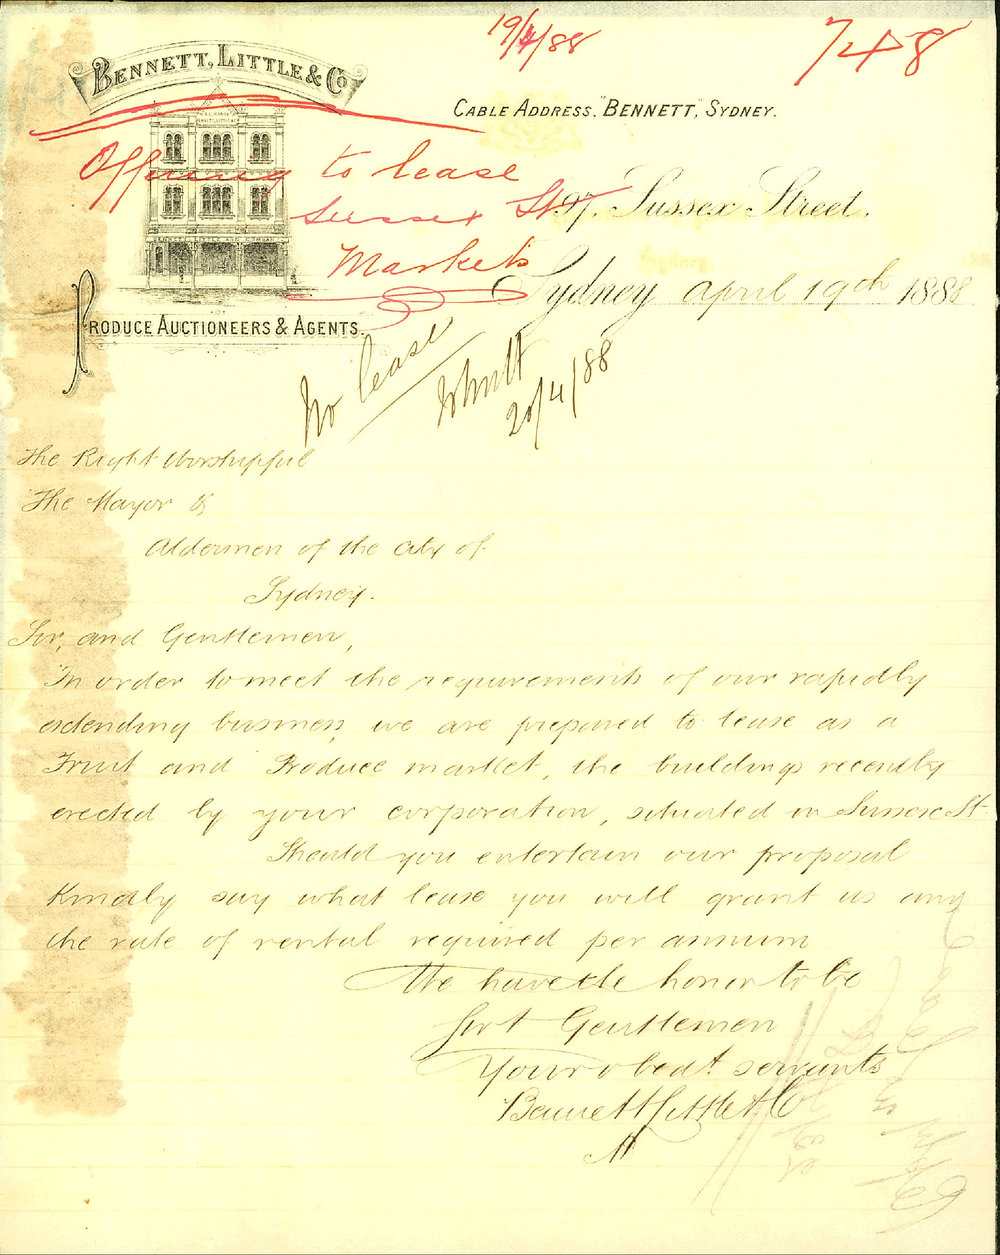 19/4/88
748
BENNETT, LITTLE & Co
CABLE ADDRESS. "BENNETT," SYDNEY.
Offering to lease
Sussex St
Markets
97. Sussex Street.
Sydney april 19th 1888
PRODUCE AUCTIONEERS & AGENTS.
No lease
20/4/88
The Right Worshipful
The Mayor &
Aldermen of the city of
Sydney.
Sir, and Gentlemen,
In order to meet the requirements of our rapidly
extending business, we are prepared to lease as a
Fruit and Produce market, the buildings recently
erected by your corporation, situated in Sussex St.
Should you entertain our proposal
Kindly say what lease you will grant us and
the rate of rental required per annum
We have the honor to be
Sir & Gentlemen
Your obedt. servants
Bennett Little & Co